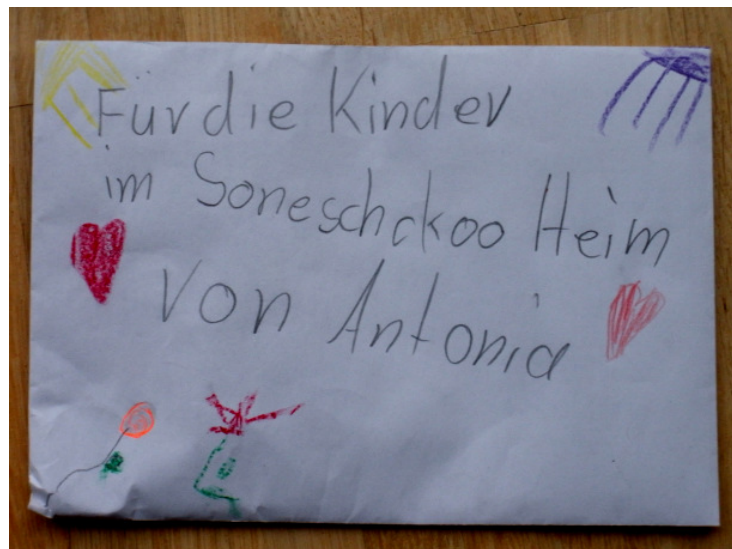 Für die Kinder
im Soneschckoo Heim
von Antonia